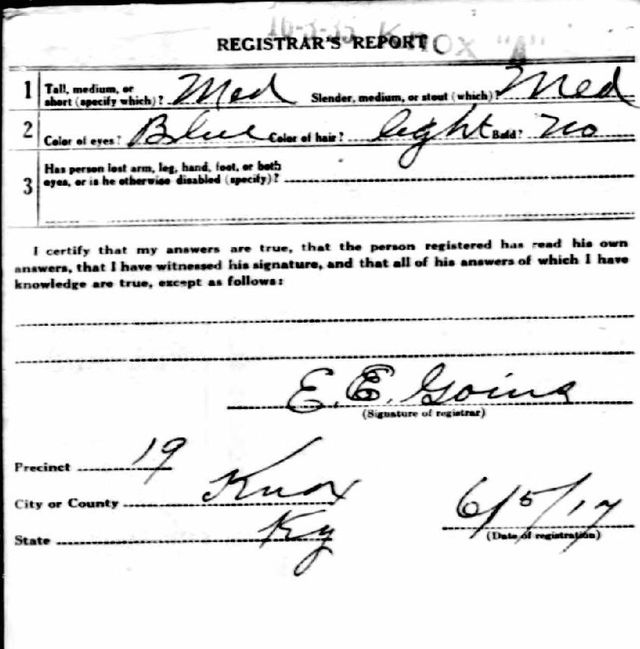 10-3-35 KNOX "A"
REGISTRAR'S REPORT
1 Tall, medium, or short (specify which)? Med Slender, medium, or stout (which)? Med
2 Color of eyes? Blue Color of hair? light Bald? no
3 Has person lost arm, leg, hand, foot, or both eyes, or is he otherwise disabled (specify)?
I certify that my answers are true, that the person registered has read his own
answers, that I have witnessed his signature, and that all of his answers of which I have
knowledge are true, except as follows:
E. E. Goins
(Signature of registrar)
Precinct 19
City or County Knox
State Ky
6/5/17
(Date of registration)